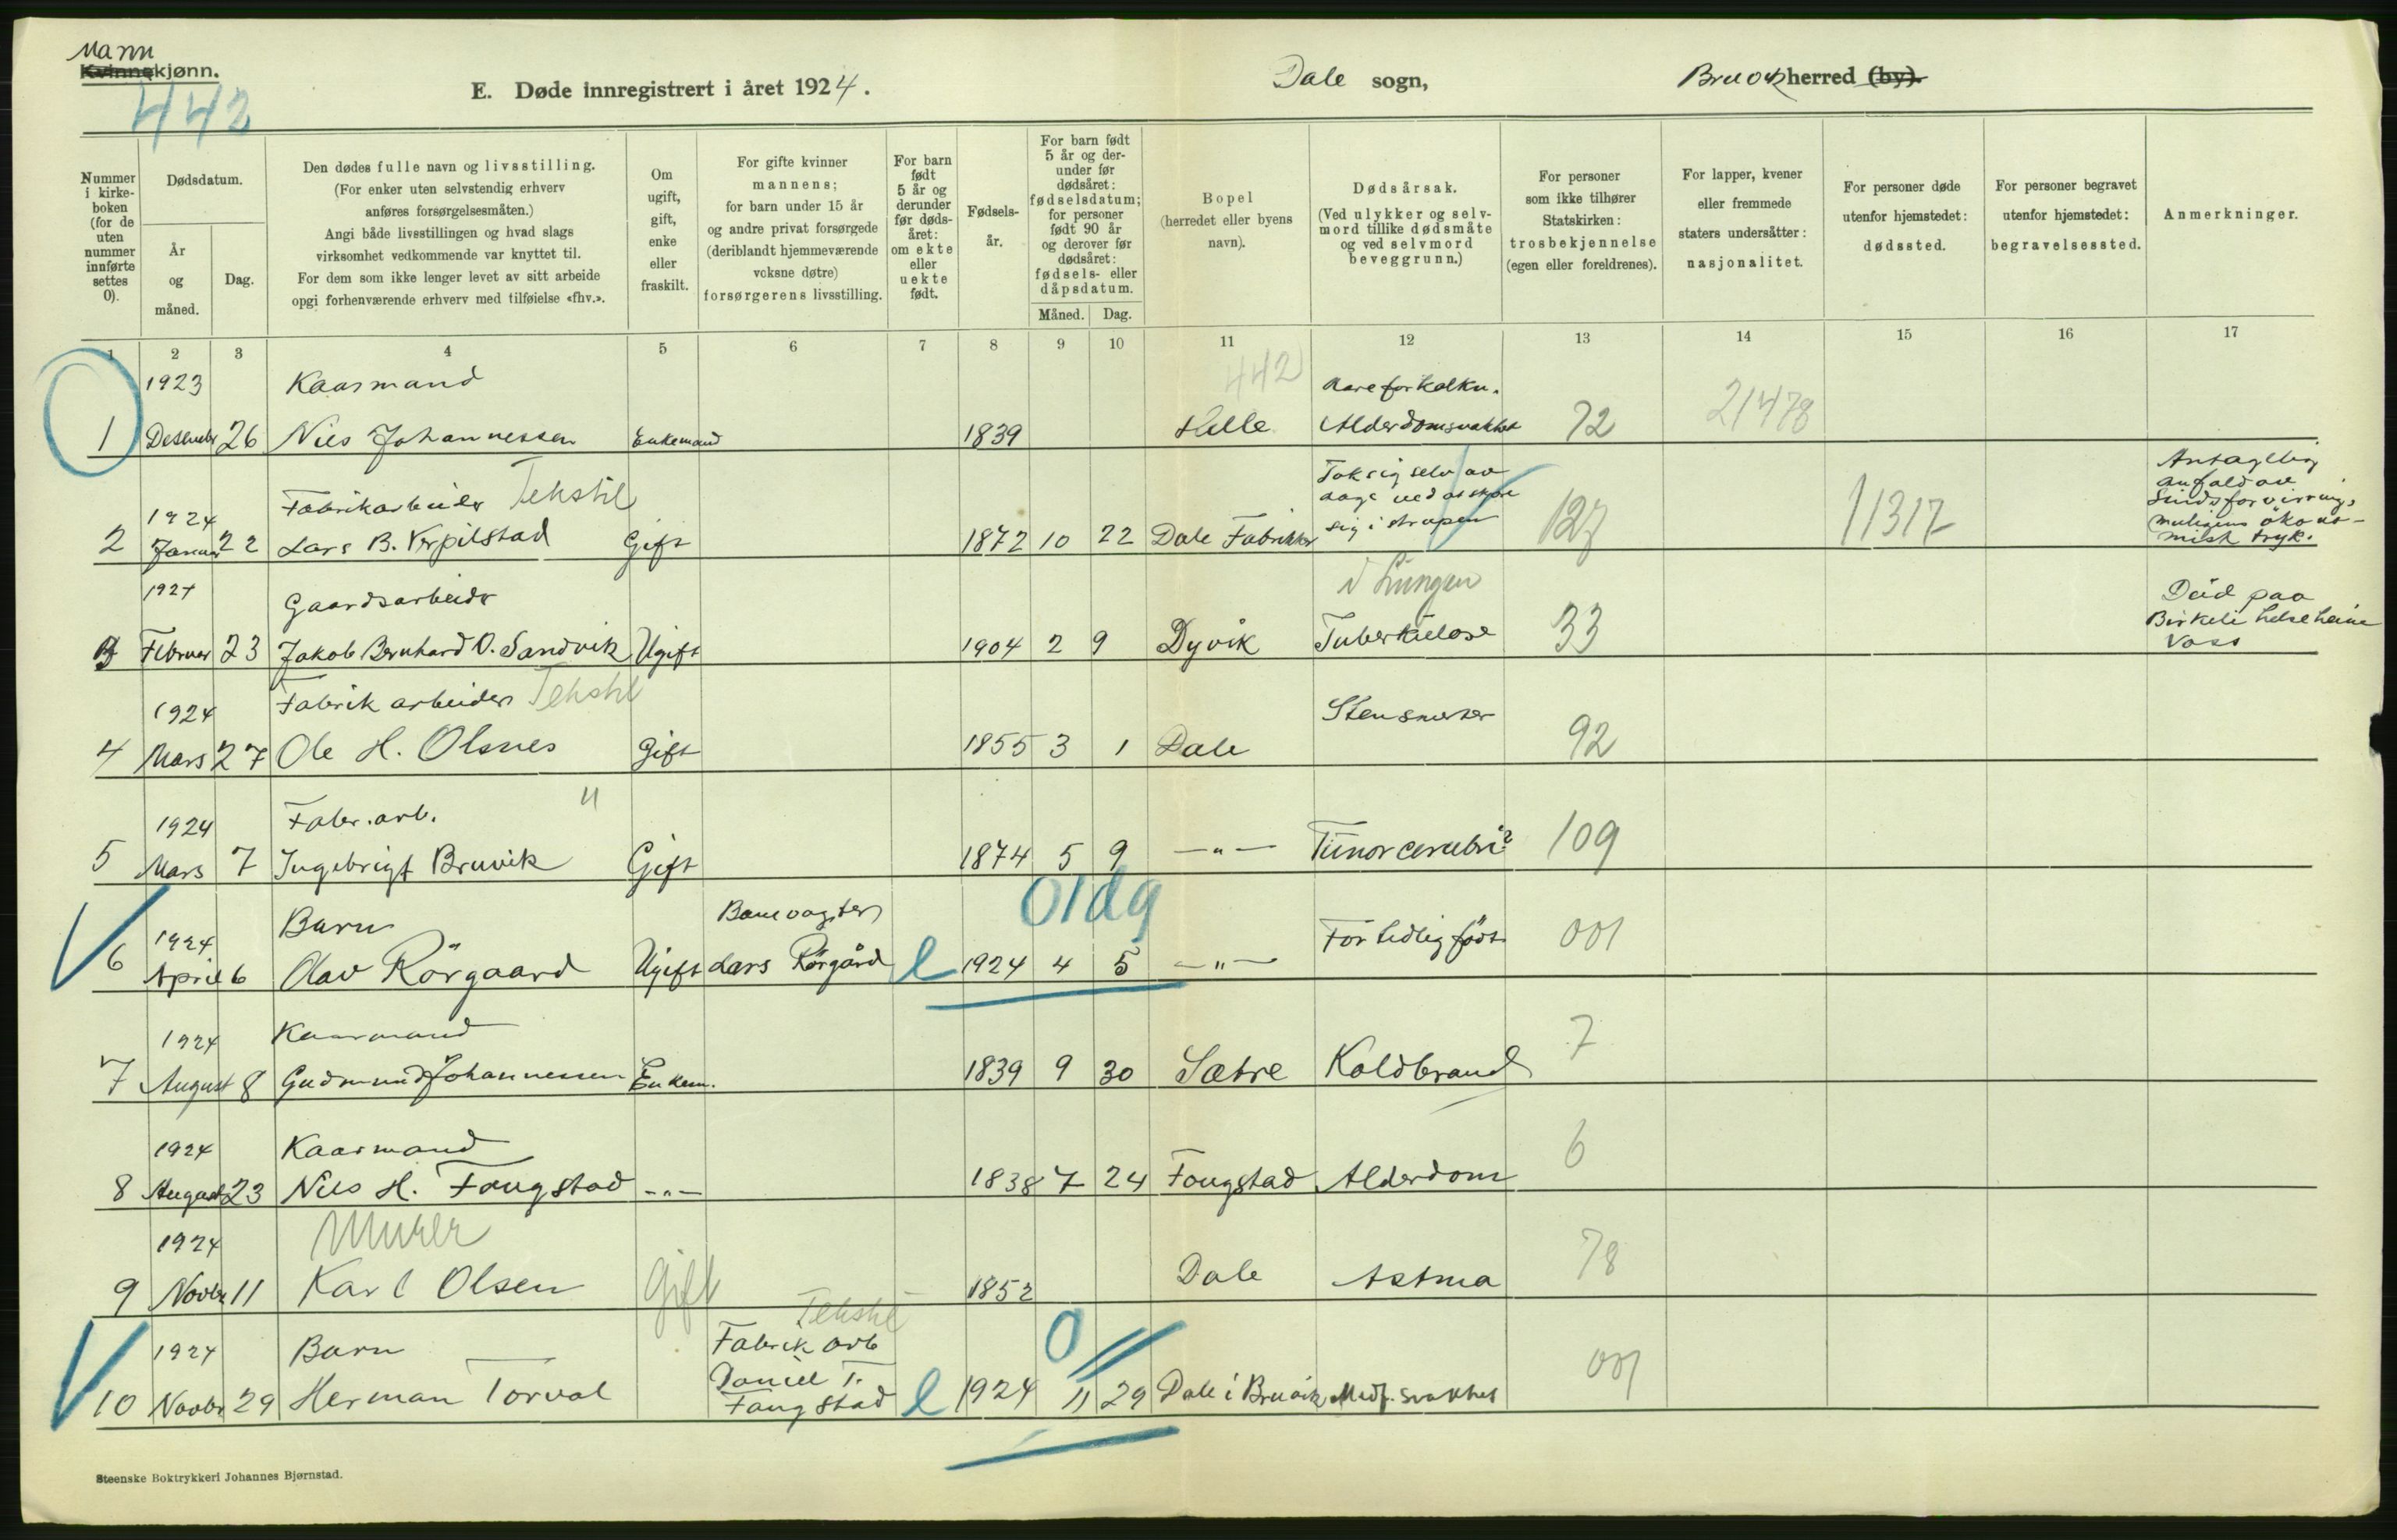 Mann
Kvinnekjønn.
442
E. Døde innregistrert i året 1924.
Dale sogn,
Bruvik herred (by).
Nummer i kirkeboken (for de uten nummer innførte settes 0).
Dødsdatum.
År og måned.
Dag.
Den dødes fulle navn og livsstilling.
(For enker uten selvstendig erhverv
anføres forsørgelsesmåten.)
Angi både livsstillingen og hvad slags
virksomhet vedkommende var knyttet til.
For dem som ikke lenger levet av sitt arbeide
opgi forhenværende erhverv med tilføielse «fhv.».
Om ugift, gift, enke eller fraskilt.
For gifte kvinner
mannens;
for barn under 15 år
og andre privat forsørgede
(deriblandt hjemmeværende
voksne døtre)
forsørgerens livsstilling.
For barn født 5 år og derunder før dødsåret: om ekte eller uekte født.
Fødselsår.
For barn født 5 år og derunder før dødsåret: fødselsdatum; for personer født 90 år og derover før dødsåret: fødsels- eller dåpsdatum.
Måned. Dag.
Bopel
(herredet eller byens
navn).
Dødsårsak.
(Ved ulykker og selv-
mord tillike dødsmåte
og ved selvmord
beveggrunn.)
For personer
som ikke tilhører
Statskirken:
trosbekjennelse
(egen eller foreldrenes).
For lapper, kvener
eller fremmede
staters undersåtter:
nasjonalitet.
For personer døde
utenfor hjemstedet:
dødssted.
For personer begravet
utenfor hjemstedet:
begravelsessted.
Anmerkninger.
1 2 3 4 5 6 7 8 9 10 11 12 13 14 15 16 17
1923 Kaarmand 442 Aareforkalkn.
1 Desember 26 Nils Johannessen Enkemand 1839 Helle Alderdomsvakhet 72 21478
1924 Fabrikarbeider Tekstil Tok sig selv av
dage ved at skjære
sig i strupen
2 Januar 22 Lars B. Verpilstad Gift 1872 10 22 Dale Fabrikker 127 11317
Antagelig
anfald av
Sindsforvirring,
muligens økono-
misk tryk.
1924 Gaardsarbeider i Lungen
3 Februar 23 Jakob Bernhard O. Sandvik Ugift 1904 2 9 Dyvik Tuberkulose 33
Död paa
Birkeli helseheim
Voss
1924 Fabrik arbeider Tekstil
4 Mars 27 Ole H. Olsnes Gift 1855 3 1 Dale Stensmerter 92
1924 Fabr. arb. "
5 Mars 7 Ingebrigt Bruvik Gift 1874 5 9 —"— Tumor cerebri? 109
1924 Barn Banevogter 01dg
6 April 6 Olav Rörgaard Ugift Lars Rørgård e 1924 4 5 —"— For tidlig født 001
1924 Kaarmand
7 August 8 Gudmund Johannessen Enkem. 1839 9 30 Sætre Koldbrand 7
1924 Kaarmand
8 August 23 Nils H. Fougstad -"- 1838 7 24 Fougstad Alderdom 6
1924 Murer
9 Novbr 11 Karl Olsen Gift 1852 Dale Astma 78
1924 Barn Tekstil
Fabrik arb 0
10 Novbr. 29 Herman Torval Daniel T.
Fougstad e 1924 11 29 Dale i Bruvik Medf. svakhet 001
Steenske Boktrykkeri Johannes Bjørnstad.